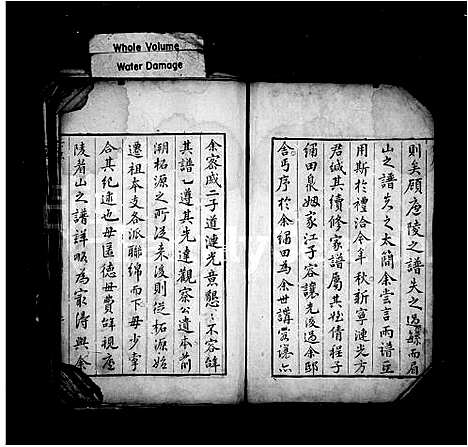 Whole Volume
Water Damage
則矣顧廬陵之譜失之過縣而眉
山之譜失之太簡余嘗言兩譜互
用斯於禮洽今年秋新寧漣光方
君誠其續修家譜屬其姓倩程子
繩田泉姻家江子容讓光後過余邸
舍丐序於余繩田為余世講
余寮戚二子道漣光意懇不容辭
其譜乃遵其先達觀察公遺本前
溯拓源之所從來後則從柘源始
遷祖本支各派聯綿而下毋少事
合其紀述也毋匿德毋費辭視廬
陵眉山之譜詳略為最得與余